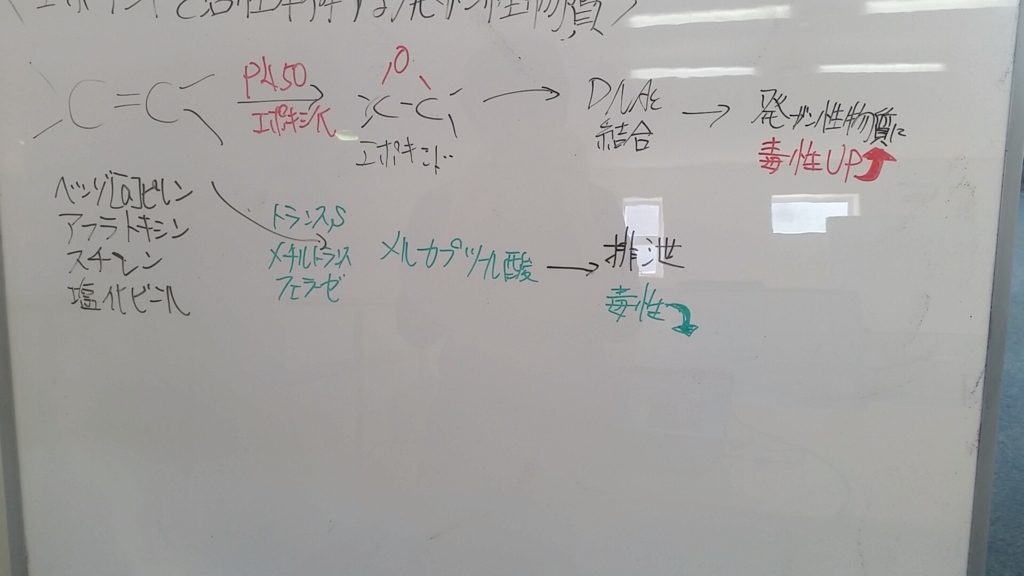 エポキシドを活性本体とする発ガン性物質
C=C
P450
エポキシ化
O
C-C
エポキシド
DNAと
結合
発ガン性物質に
毒性UP
ベンゾ[a]ピレン
アフラトキシン
スチレン
塩化ビニル
トランス,S
メチルトランス
フェラーゼ
メルカプツール酸
排泄
毒性